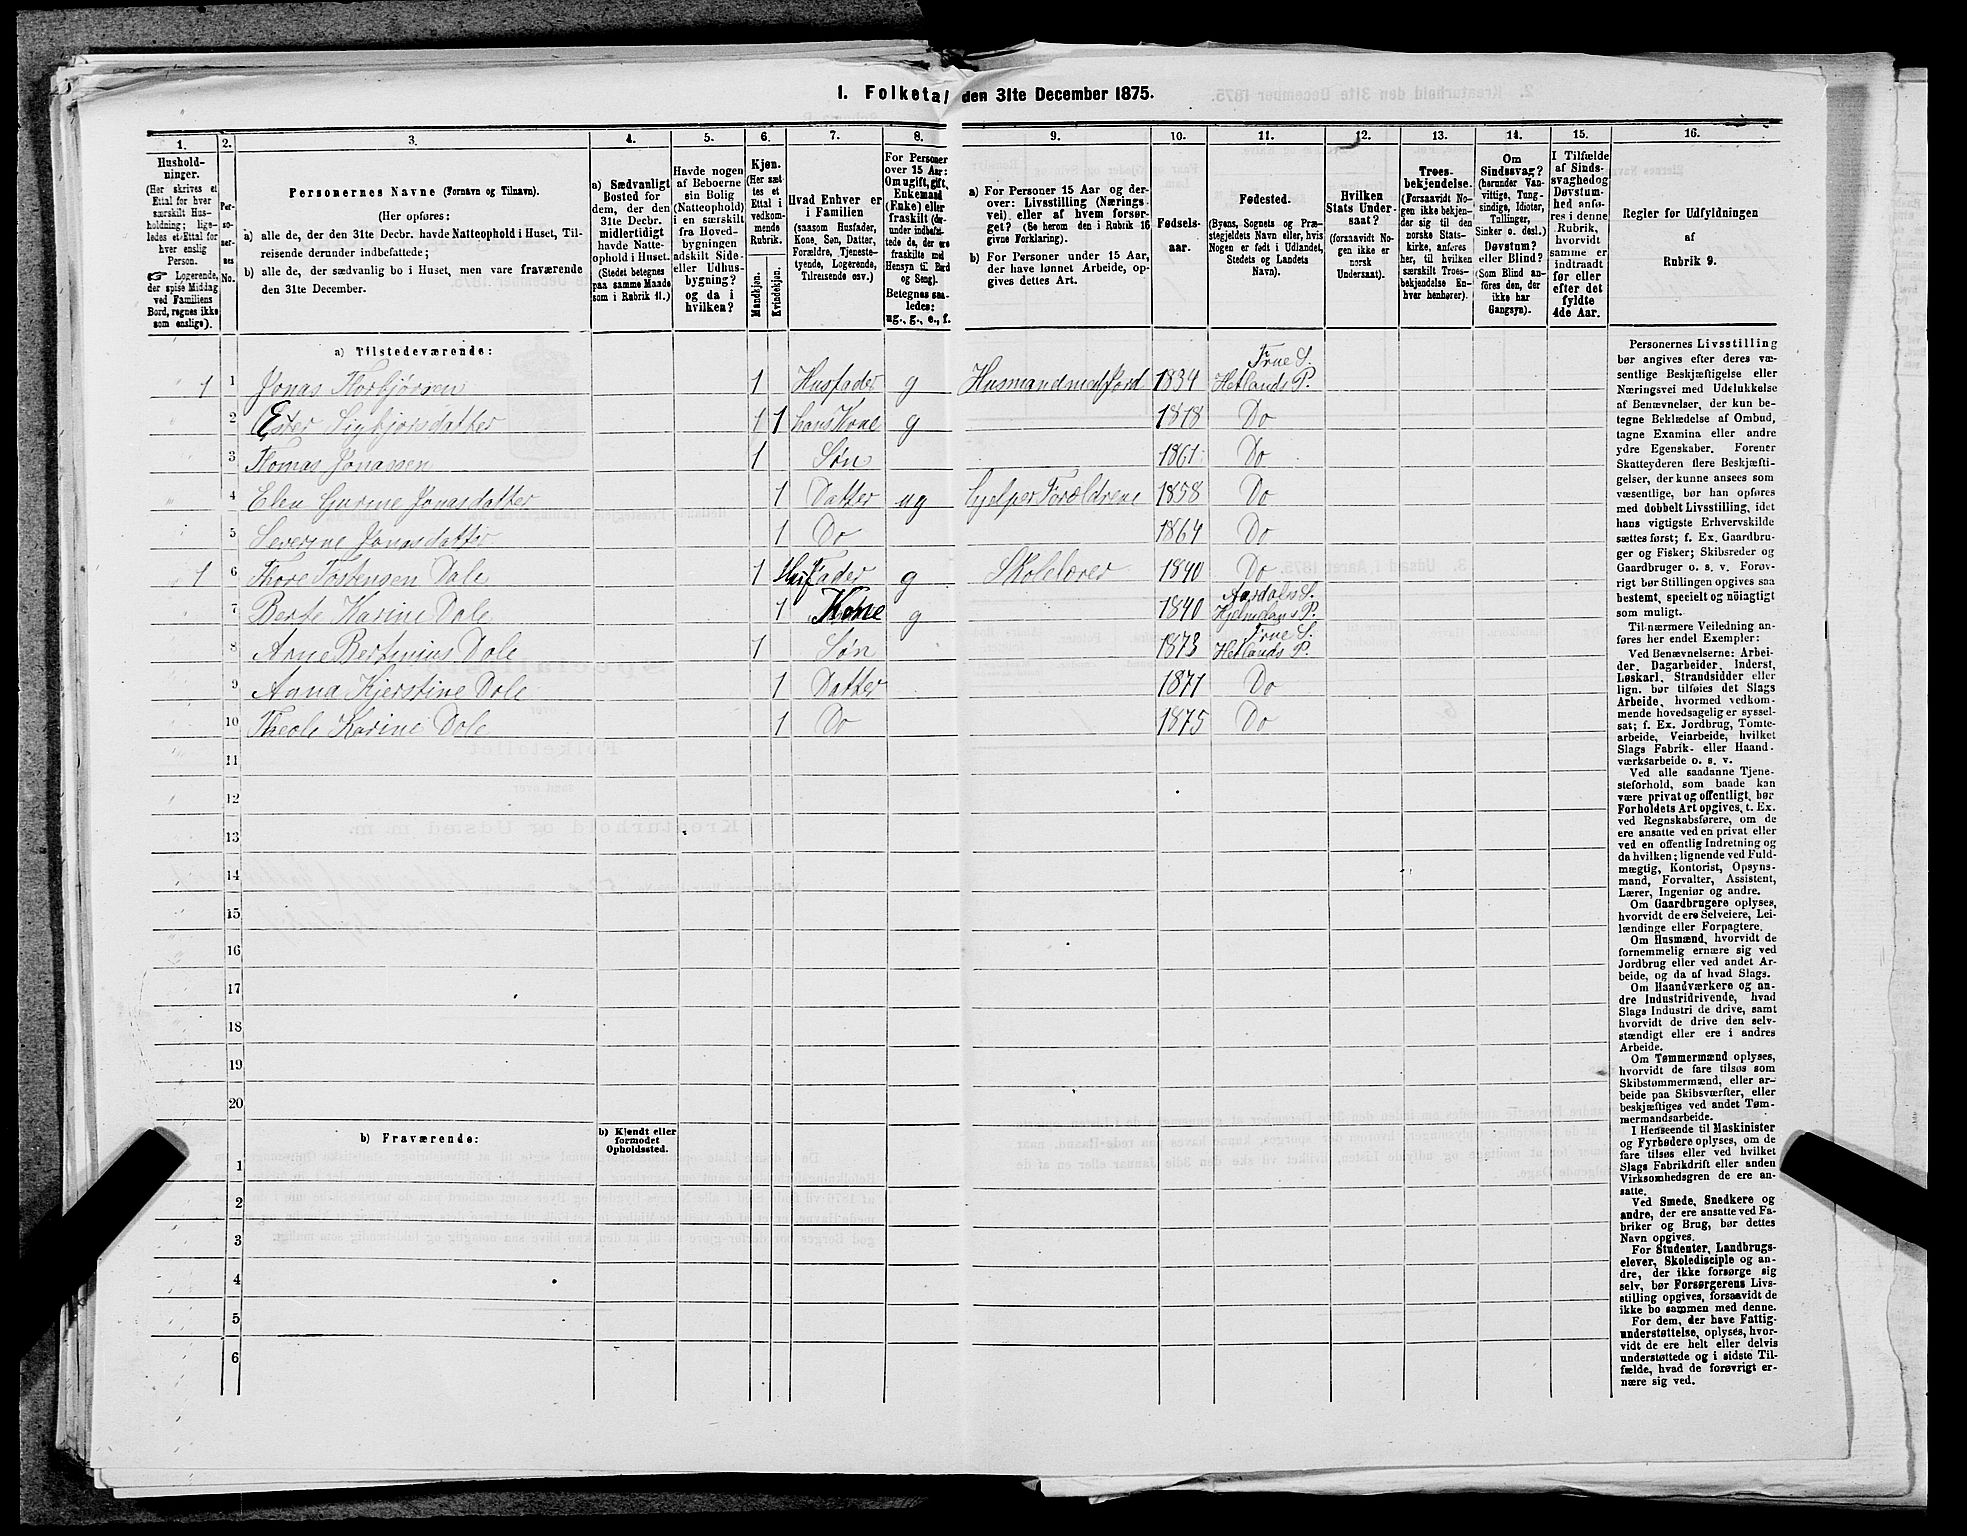 1. Folketal den 31te December 1875.
1.
Hushold-
ninger.
(Her skrives et
Ettal for hver
særskilt Hus-
holdning; lige-
ledes et Ettal for
hver enslig
Person.
☞ Logerende,
der spise Middag
ved Familiens
Bord, regnes ikke
som enslige).
2.
Per-
soner-
nes
No.
3.
Personernes Navne (Fornavn og Tilnavn).
(Her opføres:
a) alle de, der den 31te Decbr. havde Natteophold i Huset, Til-
reisende derunder indbefattede;
b) alle de, der sædvanlig bo i Huset, men vare fraværende
den 31te December.
4.
a) Sædvanligt
Bosted for
dem, der den
31te Decbr.
midlertidigt
havde Natte-
ophold i Huset.
(Stedet betegnes
paa samme Maade
som i Rubrik 11.)
5.
Havde nogen
af Beboerne
sin Bolig
(Natteophold)
i en særskilt
fra Hoved-
bygningen
adskilt Side-
eller Udhus-
bygning?
og da i
hvilken?
6.
Kjøn.
(Her sæt-
tes et
Ettal i
vedkom-
mende
Rubrik.
Mandkjøn.
Kvindekjøn.
7.
Hvad Enhver er
i Familien
(saasom Husfader,
Kone, Søn, Datter,
Forældre, Tjeneste-
tyende, Logerende,
Tilreisende osv.)
8.
For Personer
over 15 Aar:
Om ugift, gift,
Enkemand
(Enke) eller
fraskilt (der-
under indbefat-
tede de, der ere
fraskilte med
Hensyn til Bord
og Seng).
Betegnes saa-
ledes:
ug., g., e., f.
9.
a) For Personer 15 Aar og der-
over: Livsstilling (Nærings-
vei), eller af hvem forsør-
get? (Se herom den i Rubrik 16
givne Forklaring).
b) For Personer under 15 Aar,
der have lønnet Arbeide, op-
gives dettes Art.
10.
Fødsels-
aar.
11.
Fødested.
(Byens, Sognets og Præ-
stegjeldets Navn eller, hvis
Nogen er født i Udlandet,
Stedets og Landets
Navn).
12.
Hvilken
Stats Under-
saat?
(forsaavidt No-
gen ikke er
norsk
Undersaat).
13.
Troes-
bekjendelse.
(Forsaavidt No-
gen ikke bekjen-
der sig til den
norske Stats-
kirke, anføres
her, til hvilken
særskilt Troes-
bekjendelse En-
hver henhører).
14.
Om
Sindssvag?
(herunder Van-
vittige, Tung-
sindige, Idioter,
Tullinger,
Sinker o. desl.)
Døvstum?
eller Blind?
(Som Blind an-
føres den, der
ikke har
Gangsyn).
15.
I Tilfælde
af Sinds-
svaghed og
Døvstum-
hed anfø-
res i denne
Rubrik,
hvorvidt
samme er
indtraadt
før eller
efter det
fyldte
4de Aar.
16.
Regler for Udfyldningen
af
Rubrik 9.
a) Tilstedeværende:
1 1 Jonas Thorbjørsen 1 Husfader g Husmand med Jord 1834 Frue S. Hetlands P.
2 Ester Sigbjørsdatter 1 1 hans Kone g 1818 Do
3 Thomas Jonassen 1 Søn 1861 Do
4 Elen Gurine Jonasdatter 1 Datter ug hjelper Forældrene 1858 Do
5 Severine Jonasdatter 1 Do 1864 Do
1 6 Thore Tostensen Dale 1 Husfader g Skolelærer 1840 Do
7 Berte Karine Dale 1 Kone g 1840 Aardals S. Hjelmelans P.
8 Arne Bertinius Dale 1 Søn 1873 Frue S. Hetlands P.
9 Anna Kjerstine Dale 1 Datter 1871 Do
10 Theole Karine Dale 1 Do 1875 Do
11
12
13
14
15
16
17
18
19
20
b) Fraværende:
b) Kjendt eller
formodet
Opholdssted.
1
2
3
4
5
6
Personernes Livsstilling
bør angives efter deres væ-
sentlige Beskjæftigelse eller
Næringsvei med Udelukkelse
af Benævnelser, der kun be-
tegne Beklædelse af Ombud,
tagne Examina eller andre
ydre Egenskaber. Forener
Skatteyderen flere Beskjæfti-
gelser, der kunne ansees som
væsentlige, bør han opføres
med dobbelt Livsstilling, idet
hans vigtigste Erhvervskilde
sættes først; f. Ex. Gaardbru-
ger og Fisker; Skibsreder og
Gaardbruger o. s. v. Forøv-
rigt bør Stillingen opgives saa
bestemt, specielt og nøiagtigt
som muligt.
Til nærmere Veiledning an-
føres her endel Exempler:
Ved Benævnelserne: Arbei-
der, Dagarbeider, Inderst,
Løskarl, Strandsidder eller
lign. bør tilføies det Slags
Arbeide, hvormed vedkom-
mende hovedsagelig er syssel-
sat; f. Ex. Jordbrug, Tomte-
arbeide, Veiarbeide, hvilket
Slags Fabrik- eller Haand-
værksarbeide o. s. v.
Ved alle saadanne Tjene-
steforhold, som baade kan
være privat og offentligt, bør
Forholdets Art opgives, t. Ex.
ved Regnskabsførere, om de
ere ansatte ved en privat eller
ved en offentlig Indretning og
da hvilken; lignende ved Fuld-
mægtig, Kontorist, Opsyns-
mand, Forvalter, Assistent,
Lærer, Ingeniør og andre.
Om Gaardbrugere oplyses,
hvorvidt de ere Selveiere, Lei-
lændinge eller Forpagtere.
Om Husmænd, hvorvidt de
fornemmelig ernære sig ved
Jordbrug eller ved andet Ar-
beide, og da af hvad Slags.
Om Haandværkere og an-
dre Industridrivende, hvad
Slags Industri de drive, samt
hvorvidt de drive den selv-
stændigt eller ere i andres
Arbeide.
Om Tømmermænd oplyses,
hvorvidt de fare tilsøs som
Skibstømmermænd, eller ar-
beide paa Skibsværfter, eller
beskjæftiges ved andet Tøm-
mermandsarbeide.
I Henseende til Maskinister
og Fyrbødere oplyses, om de
fare tilsøs eller ved hvilket
Slags Fabrikdrift eller anden
Virksomhedsgren de ere an-
satte.
Ved Smede, Snedkere og
andre, der ere ansatte ved Fa-
briker og Brug, bør dettes
Navn opgives.
For Studenter, Landbrugs-
elever, Skoledisciple og an-
dre, der ikke forsørge sig
selv, bør Forsørgerens Livs-
stilling opgives, forsaavidt de
ikke bo sammen med denne.
For dem, der have Fattig-
understøttelse, oplyses, hvor-
vidt de ere helt eller delvis
understøttede og i sidste Til-
fælde, hvad de forøvrigt er-
nære sig ved.